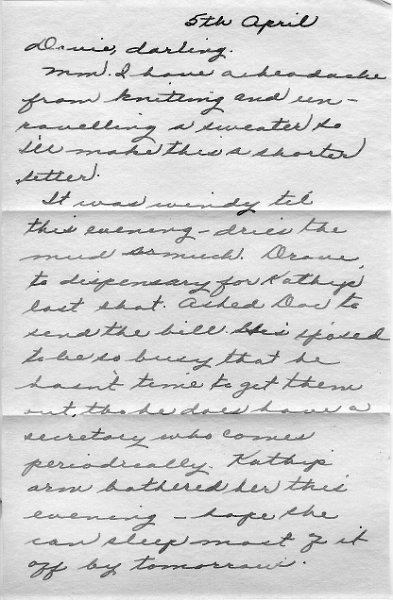 5th April
Davie, darling.
Mm. I have a headache
from knitting and un-
ravelling a sweater so
I'll make this a shorter
letter.
It was windy til
this evening - dries the
mud so much. Drove
to dispensary for Kathy's
last shot. Asked Doc to
send the bill. He's s'posed
to be so busy that he
hasn't time to get them
out, tho he does have a
secretary who comes
periodically. Kathy's
arm bothered her this
evening - hope she
can sleep most of it
off by tomorrow.